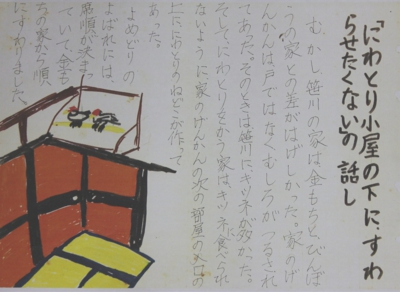 「にわとり小屋の下に、すわ
らせたくない」の話し
むかし、笹川の家は金もちとびんぼ
うの家との差がはげしかった。家のげ
んかんは戸ではなくむしろがつるされ
てあった。そのときは笹川にキツネが多かった。
そして、にわとりをかう家は、キツネに食べられ
ないように家のげんかんの次の部屋の入口の
上ににわとりのねどこが作って
あった。
よめどりの
よばれには、
席順が決まっ
ていて、金も
ちの家から順
にすわりました。